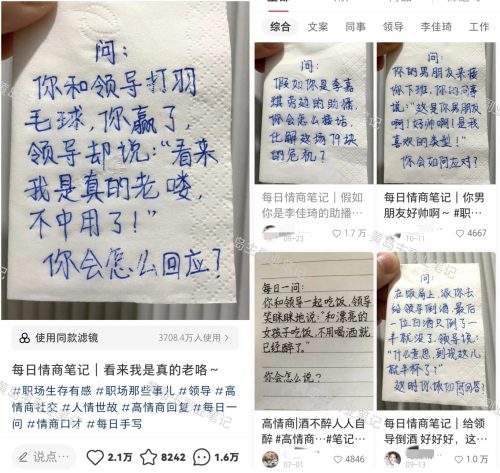 问：
你和领导打羽
毛球，你赢了，
领导却说：“看来
我是真的老喽，
不中用了！”
你会怎么回应？
使用同款滤镜
3708.4万人使用 >
每日情商笔记｜看来我是真的老咯～
#职场生存有感 #职场那些事儿 #领导 #高
情商社交 #人情世故 #高情商回复 #每日一
问 #情商口才 #每日手写
说点...
2.1万
8242
1.6万
综合
文案
同事
领导
李佳琦
工作
问：
假如你是李嘉
琪旁边的助播，
你会怎么接话，
化解这场79块
的危机？
每日情商笔记｜假如
你是李佳琦的助播...
09-23
1.7万
问：
你的男朋友来接
你下班，你的同事
说：“这是你男朋友
啊！好帅啊！是我
喜欢的类型！”
你会如何应对？
每日情商笔记｜你男
朋友好帅啊～ #职...
10-11
4667
每日一问：
你和领导一起吃饭，领导
笑眯眯地说：“和漂亮的
女孩子吃饭，不用喝酒就
已经醉了。”
你会怎么说？
高情商|酒不醉人人自
醉 #高情商...#笔记...
07-01
4846
问：
在饭局上，派你去
给领导倒酒，最后
一位白酒只倒了一
半就没了，领导说：
“什么意思，到我这儿
就半杯了？”
这时你做何回答？
每日情商笔记｜给领
导倒酒 好好好，这...
1.6万